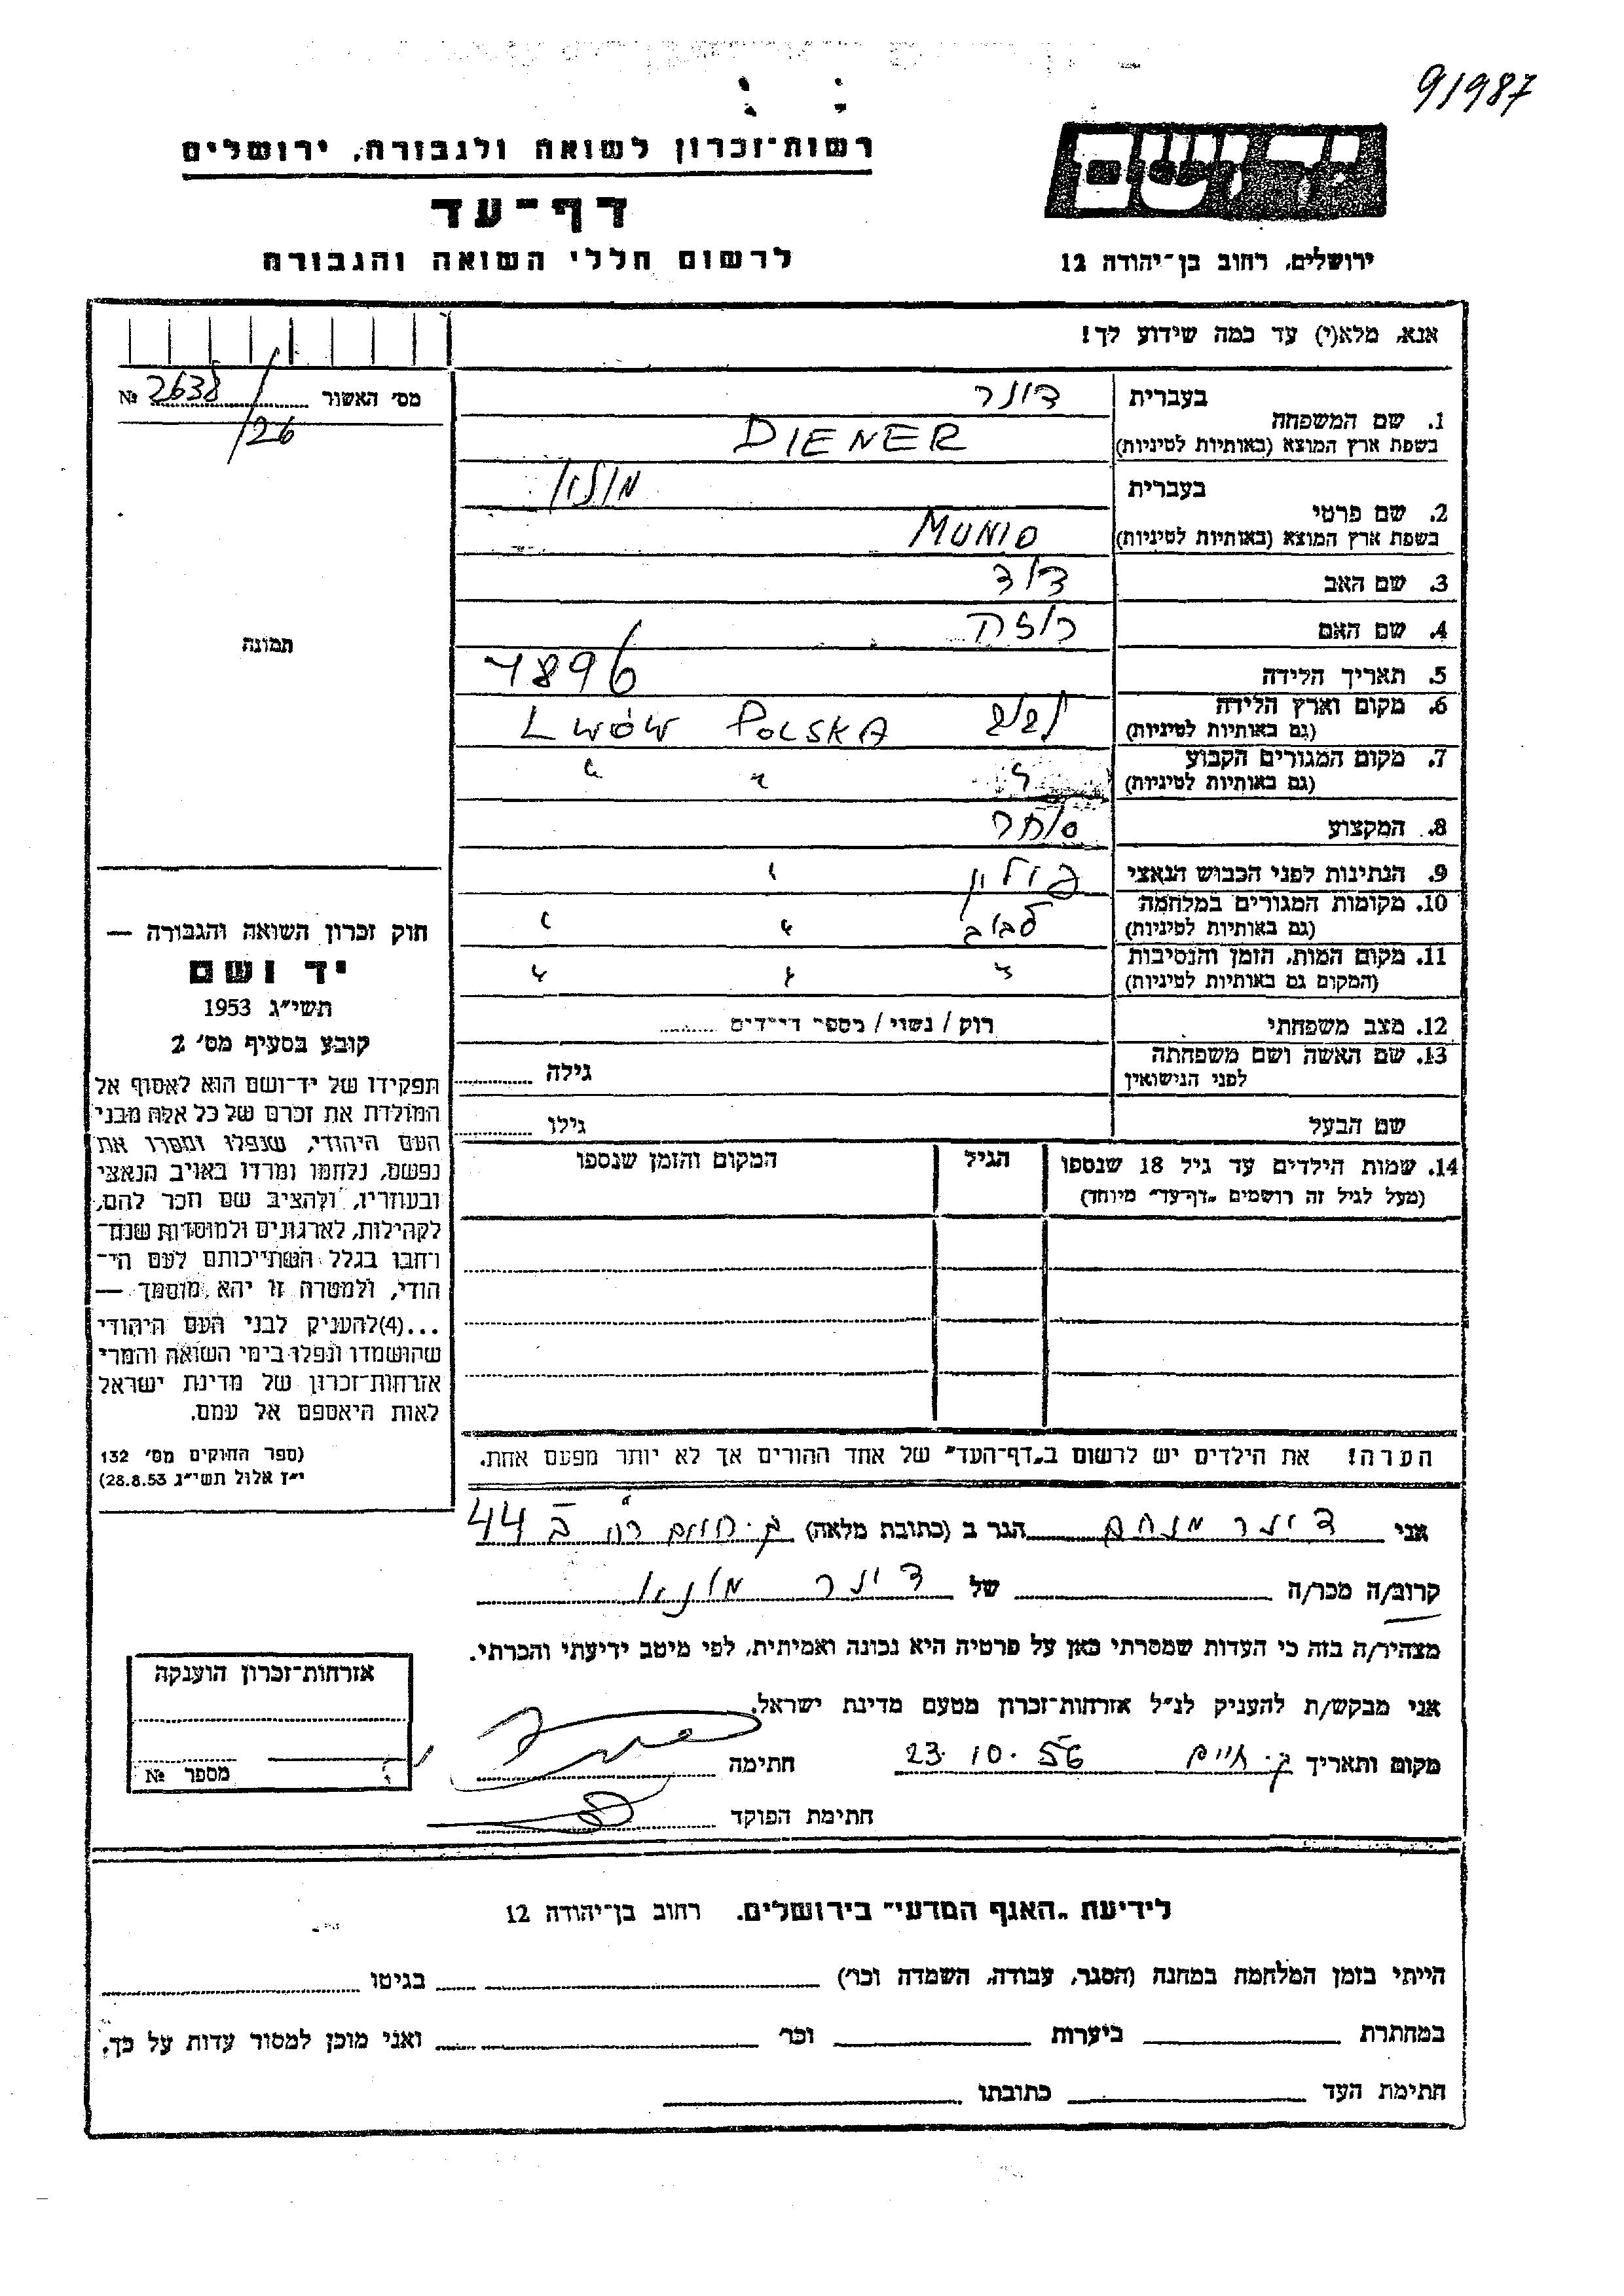 91987
רשות־זכרון לשואה ולגבורה, ירושלים
יד ושם
דף־עד
לרשום חללי השואה והגבורה
ירושלים, רחוב בן־יהודה 12
אנא, מלא(י) עד כמה שידוע לך!
מס׳ האשור 2638 №
/26
תמונה
1. שם המשפחה בעברית דינר
בשפת ארץ המוצא (באותיות לטיניות) DIENER
2. שם פרטי בעברית
בשפת ארץ המוצא (באותיות לטיניות) MUNIO
3. שם האב דוד
4. שם האם רוזה
5. תאריך הלידה 1896
6. מקום וארץ הלידה LWÓW POLSKA
(גם באותיות לטיניות)
7. מקום המגורים הקבוע " " "
(גם באותיות לטיניות)
8. המקצוע סוחר
9. הנתינות לפני הכבוש הנאצי פולין "
10. מקומות המגורים במלחמה לבוב " "
(גם באותיות לטיניות)
11. מקום המות, הזמן והנסיבות " " "
(המקום גם באותיות לטיניות)
12. מצב משפחתי רוק / נשוי / מספר הילדים
13. שם האשה ושם משפחתה גילה
לפני הנישואין
שם הבעל גילו
14. שמות הילדים עד גיל 18 שנספו הגיל המקום והזמן שנספו
(מעל לגיל זה רושמים „דף־עד״ מיוחד)
חוק זכרון השואה והגבורה —
יד ושם
תשי״ג 1953
קובע בסעיף מס׳ 2
תפקידו של יד־ושם הוא לאסוף אל
המולדת את זכרם של כל אלה מבני
העם היהודי, שנפלו ומסרו את
נפשם, נלחמו ומרדו באויב הנאצי
ובעוזריו, ולהציב שם וזכר להם,
לקהילות, לארגונים ולמוסדות שנח־
רחבו בגלל השתייכותם לעם הי־
הודי, ולמטרה זו יהא מוסמך —
...(4)להעניק לבני העם היהודי
שהושמדו ונפלו בימי השואה והמרי
אזרחות־זכרון של מדינת ישראל
לאות היאספם אל עמם.
(ספר החוקים מס׳ 132
י״ז אלול תשי״ג 28.8.53)
הערה! את הילדים יש לרשום ב„דף־העד״ של אחד ההורים אך לא יותר מפעם אחת.
אני דינר מנחם הגר ב (כתובת מלאה) ק. חיים רח ב 44
קרוב/ה מכר/ה של דינר
מצהיר/ה בזה כי העדות שמסרתי כאן על פרטיה היא נכונה ואמיתית, לפי מיטב ידיעתי והכרתי.
אני מבקש/ת להעניק לנ״ל אזרחות־זכרון מטעם מדינת ישראל.
מקום ותאריך ק. חיים 23.10.56 חתימה
חתימת הפוקד
אזרחות־זכרון הוענקה
מספר №
לידיעת „האגף המדעי״ בירושלים, רחוב בן־יהודה 12
הייתי בזמן המלחמה במחנה (הסגר, עבודה, השמדה וכו׳) בגיטו
במחתרת ביערות וכו׳ ואני מוכן למסור עדות על כך.
חתימת העד כתובתו